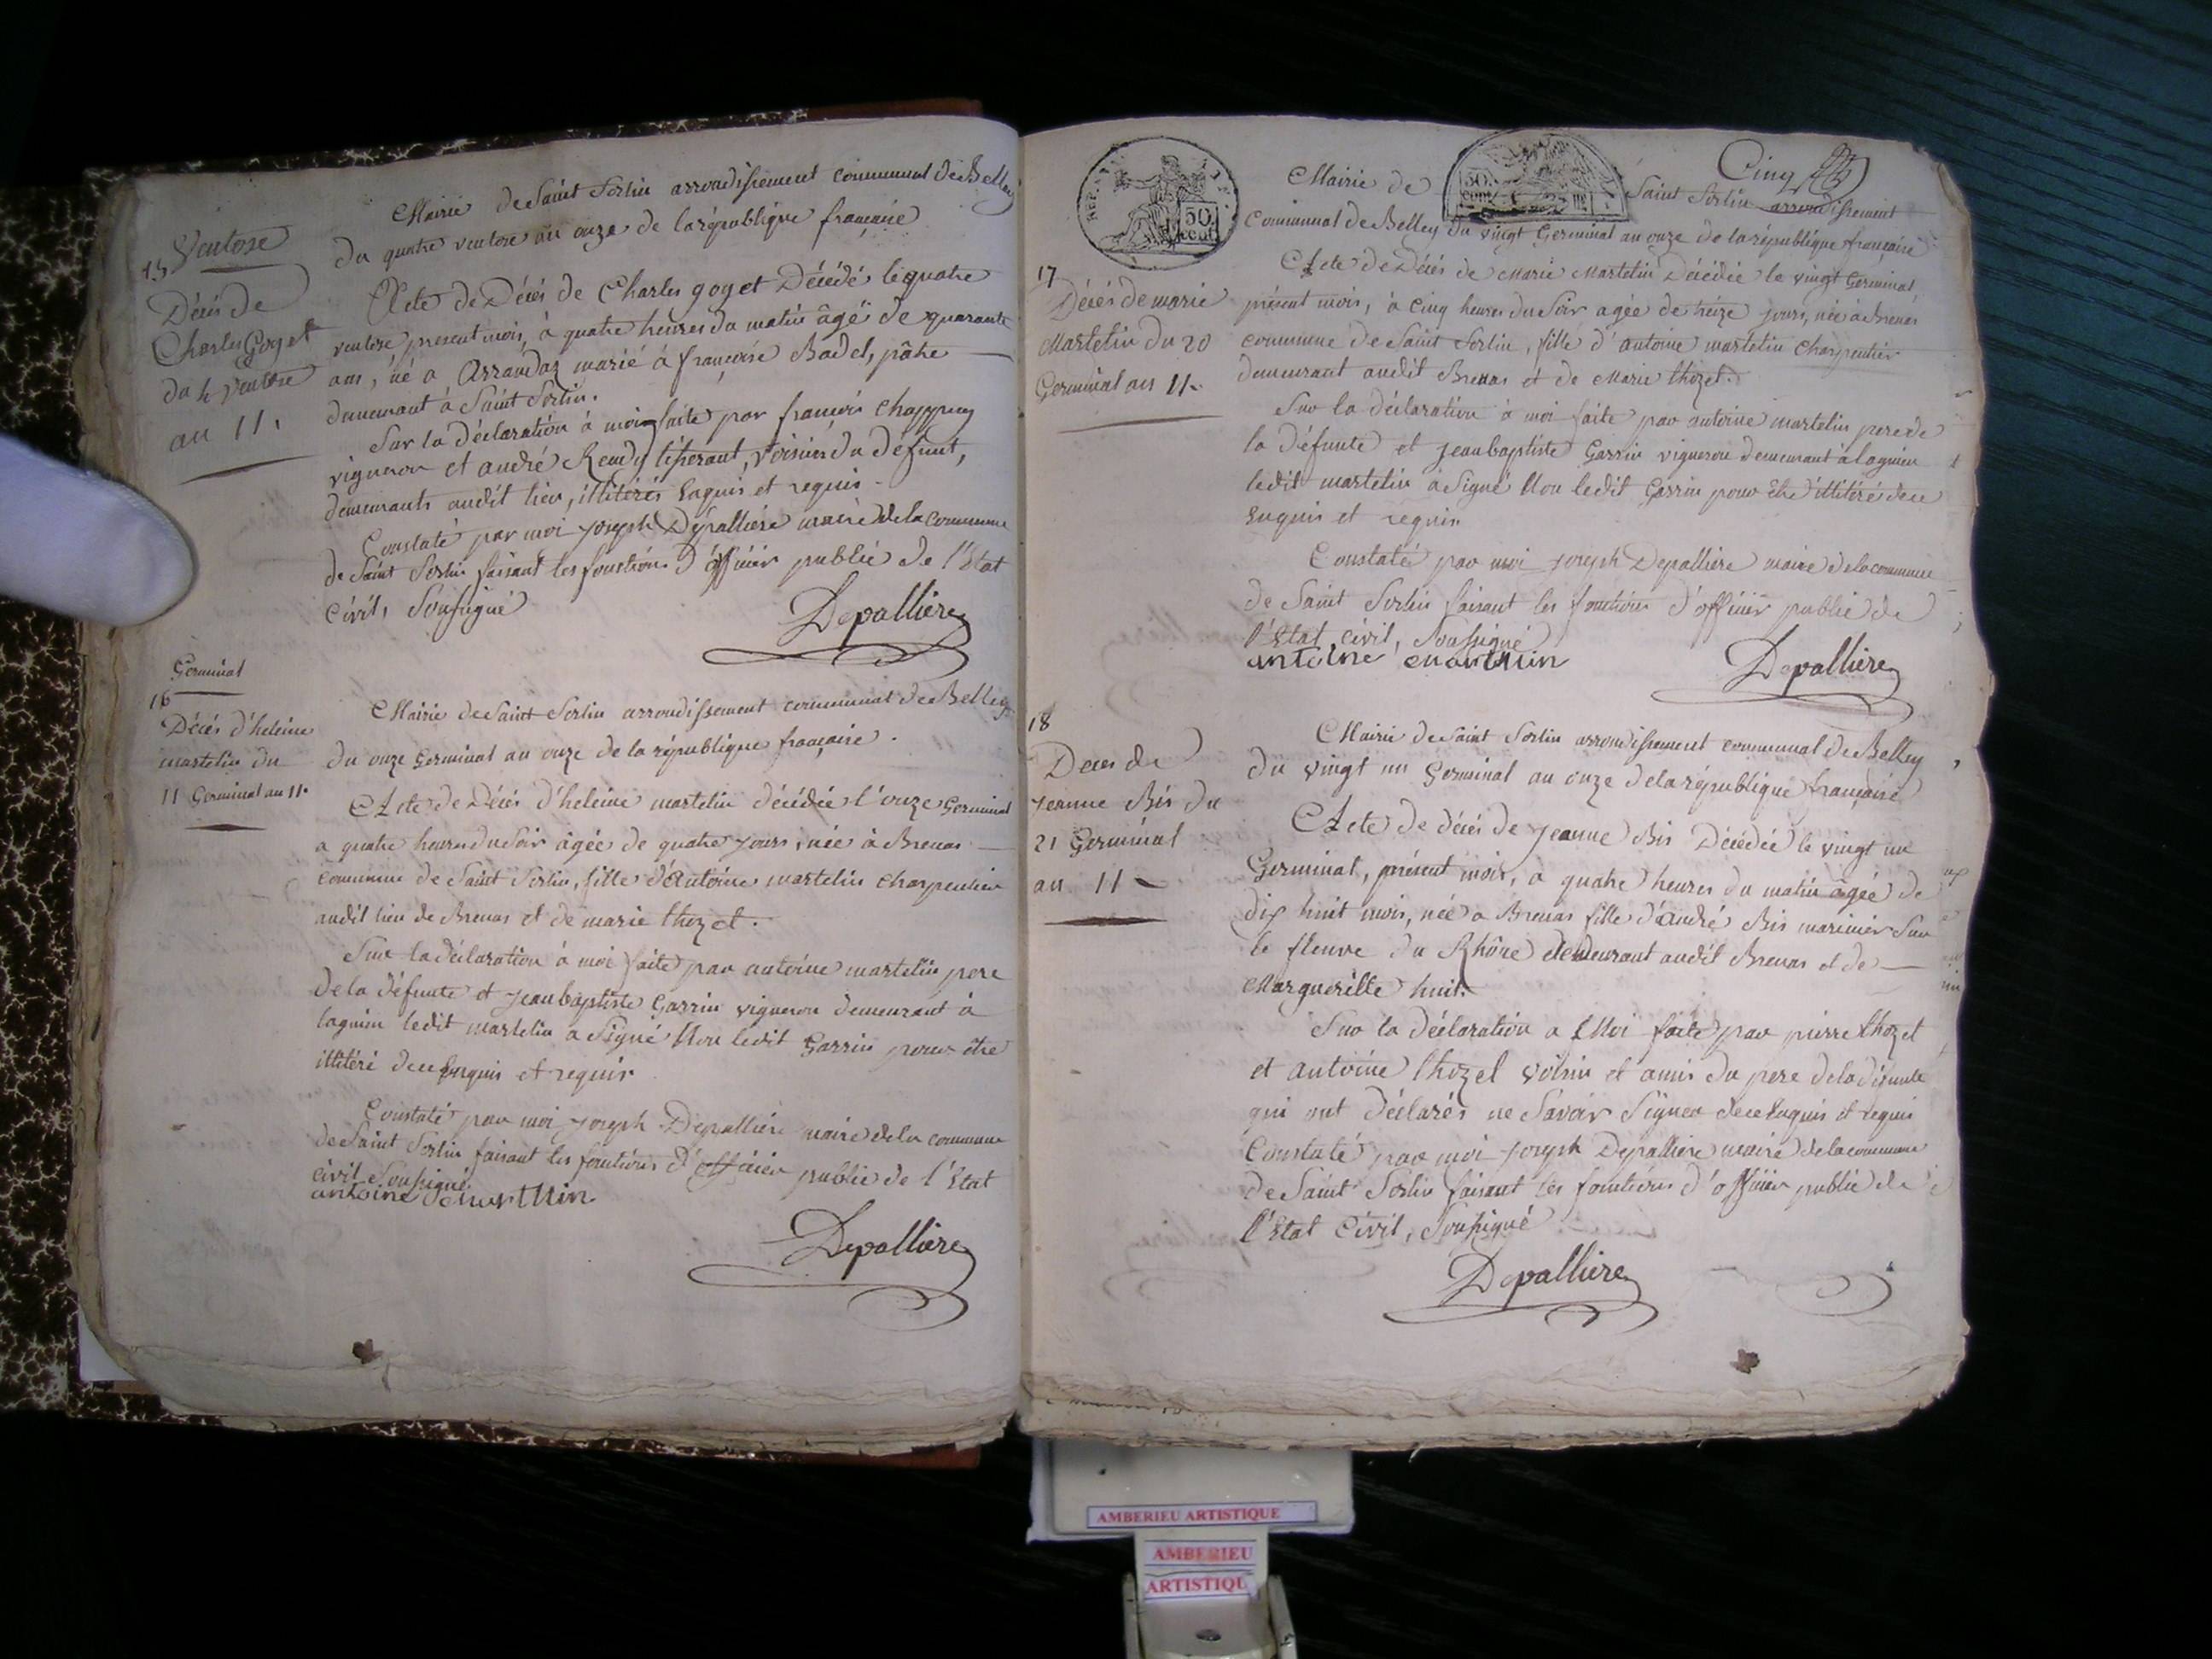 Ventose
15
Décès de
Charles Goyet
du 4 Ventose
an 11.
Mairie de Saint Sorlin arrondissement communal de Belley
du quatre ventose an onze de la république française
Acte de Décès de Charles goyet Décédé le quatre
ventose, present mois, à quatre heures du matin âgé de quarante
ans, né a Arrandaz marié à françoise Badel, pâtre
demeurant à Saint Sorlin.
Sur la déclaration à moi faite par francois Chappuy
vigneron et andré Rendy tisserant, voisins du défunt,
demeurants audit lieu, illitérés Enquis et requis
Constaté par moi joseph Depallière maire de la commune
de Saint Sorlin faisant les fonctions d'officier public de l'Etat
civil, Soussigné
Depalliere
Germinal
16
Décès d'heleine
martelin du
11 Germinal an 11.
Mairie de Saint Sorlin arrondissement communal de Belley
du onze Germinal an onze de la république française.
Acte de Décès d'heleine martelin décédée l'onze Germinal
a quatre heures du Soir âgée de quatre jours, née à Brenas
commune de Saint Sorlin, fille d'Antoine martelin charpentier
audit lieu de Brenas et de marie thozet.
Sur la déclaration à moi faite par antoine martelin pere
de la défunte et jean baptiste Garrin vigneron demeurant à
lagnieu ledit martelin a Signé Non ledit Garrin pour être
illitéré de ce Enquis et requis
Constaté par moi joseph Depalliere maire de la commune
de Saint Sorlin faisant les fonctions d'officier public de l'Etat
civil Soussigné
antoine martllin
Depalliere
Cinq
50
cent
50
cent
17
Décès de marie
Martelin du 20
Germinal an 11.
Mairie de Saint Sorlin arrondissement
Communal de Belley du vingt Germinal an onze de la république française
Acte de Décès de Marie Martelin Décédée le vingt Germinal,
présent mois, à cinq heures du Soir agée de treize jours, née à Brenas
commune de Saint Sorlin, fille d'antoine martelin Charpentier
demeurant audit Brenas et de Marie thozet.
Sur la déclaration à moi faite par antoine martelin pere de
la défunte et jean baptiste Garrin vigneron demeurant à lagnieu
ledit martelin à Signé Non ledit Garrin pour être illitéré de ce
Enquis et requis
Constaté par moi joseph Depalliere maire de la commune
de Saint Sorlin faisant les fonctions d'officier public de
l'Etat civil, Soussigné
antoine martllin
Depalliere
18
Deces de
jeanne Bis du
21 Germinal
an 11
Mairie de Saint Sorlin arrondissement communal de Belley
du vingt un Germinal an onze de la république française
Acte de décès de jeanne Bis Décédée le vingt un
Germinal, présent mois, à quatre heures du matin agée de
dix huit mois, née a Brenas fille d'andré Bis marinier Sur
le fleuve du Rhône demeurant audit Brenas et de
Marguerille huit.
Sur la déclaration a Moi faite par pierre thozet
et antoine thozet voisin et amis du pere de la défunte
qui ont déclarés ne Savoir Signer de ce Enquis et requis
Constaté par moi joseph Depalliere maire de la commune
de Saint Sorlin faisant les fonctions d'officier public de
l'Etat Civil, Soussigné
Depalliere
AMBERIEU ARTISTIQUE
AMBERIEU
ARTISTIQU